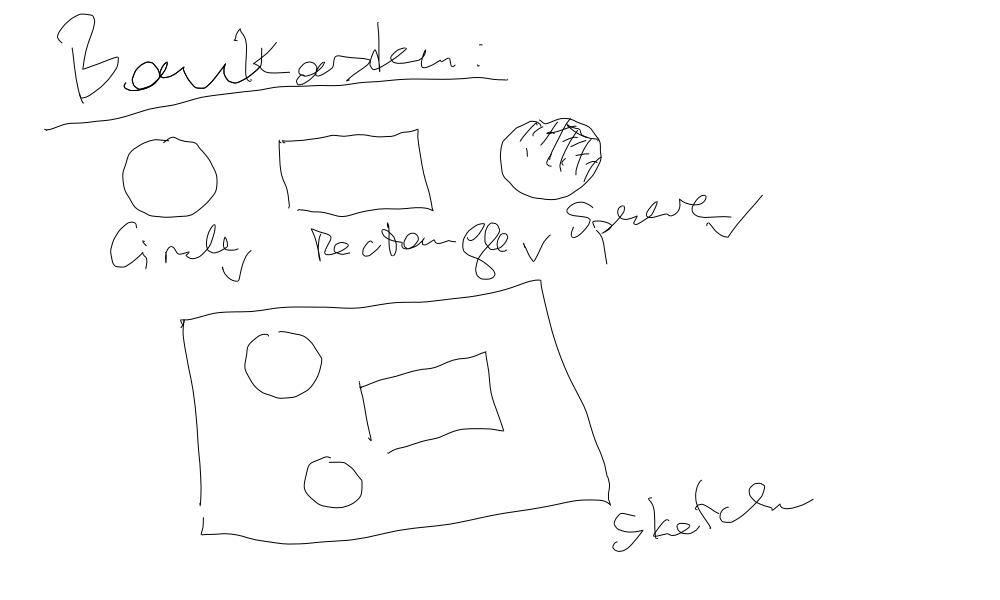 Baukasten:
Circle, Rectangle, Sphere,
Sketch